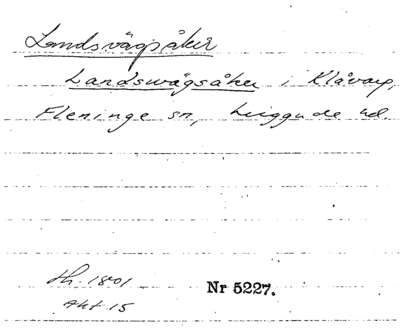 Landsvägsåker
Landsvägsåker i Klåvarp,
Fleninge sn, Luggude hd.
Lh. 1801
Akt 15
Nr 5227.